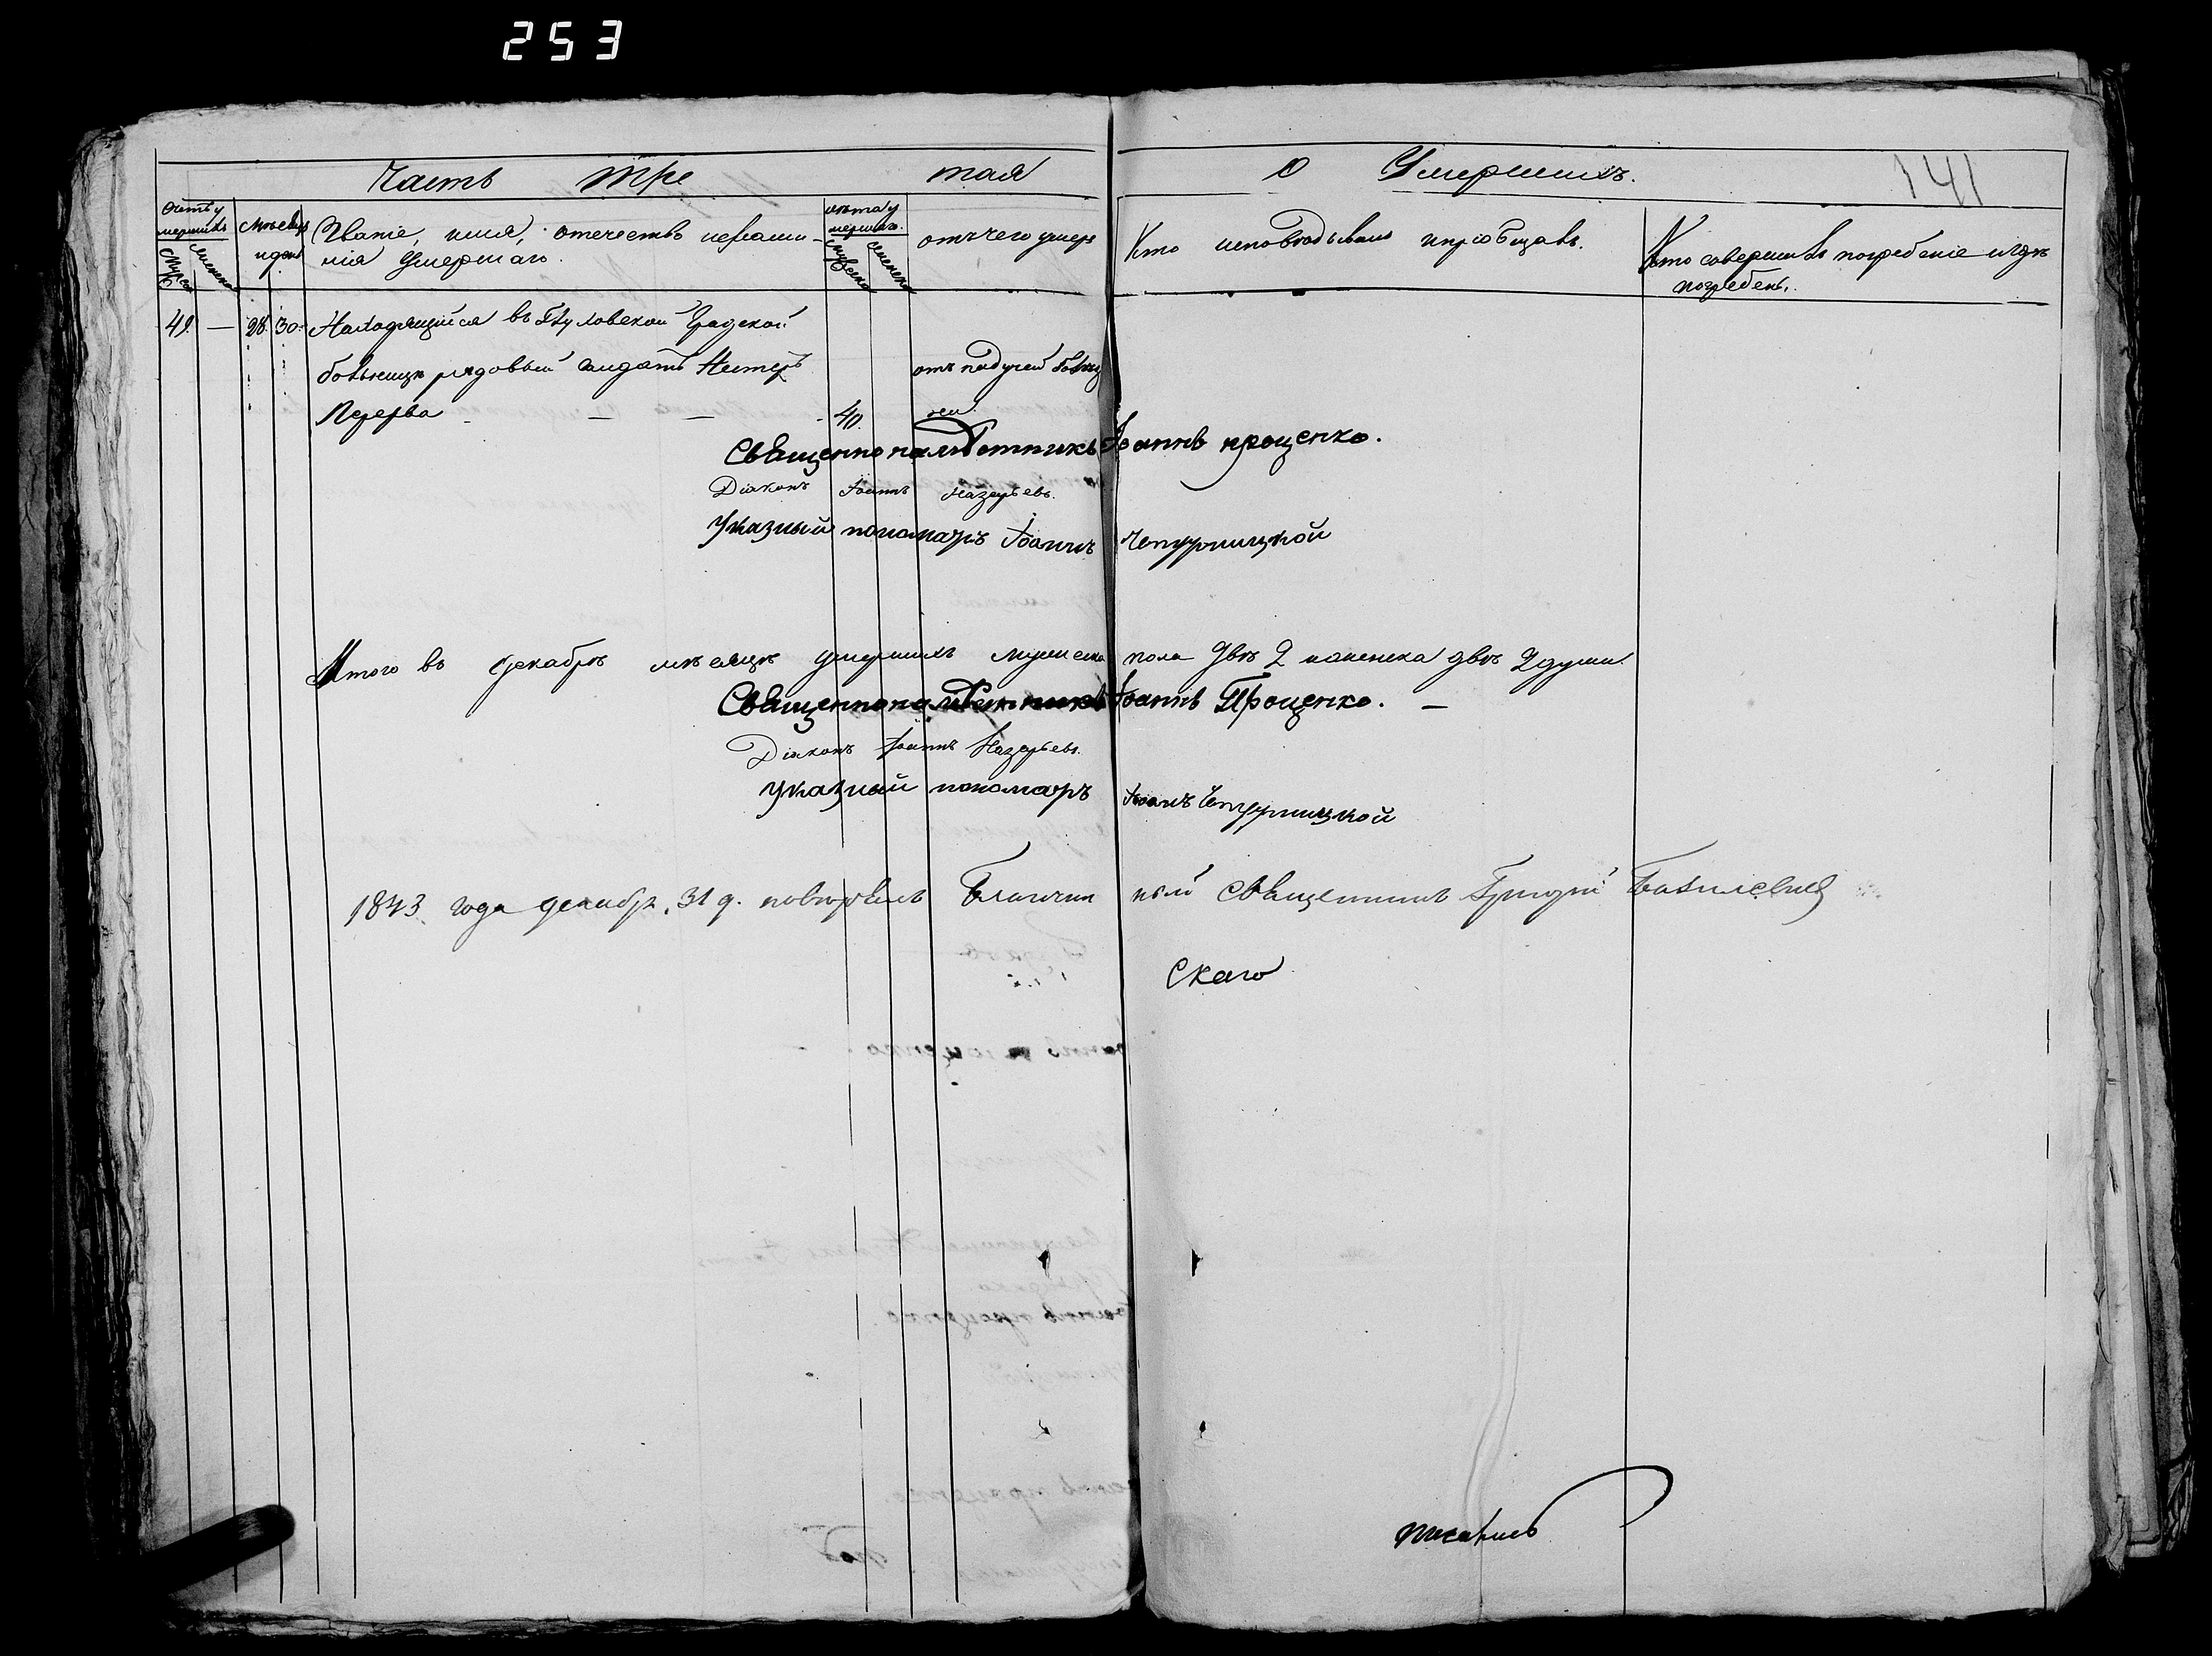 253
Часть Тре тая О Умершихъ. 141
Счетъ умершихъ
Мужеска Женска
Месяцъ и день
Званіе, имя, отечество и фамилія Умершаго.
лѣта умершаго.
Мужеска Женска
отъ чего умеръ
Кто исповѣдывалъ и пріобщалъ.
Кто совершилъ погребеніе и гдѣ погребенъ.
49. — 28. 30. Находящійся въ Градской
больницѣ рядовый солдатъ Нестеръ отъ падучей болѣз
Перерва — — 40. ни.
Священнонамѣстникъ Іоаннъ Проценко.
Діаконъ Іоаннъ Назарьевъ.
Указный пономарь Іоаннъ Чепурницкой
Итого въ декабрѣ мѣсяцѣ умершихъ мужеска пола двѣ 2 и женска двѣ 2 души.
Священнонамѣстникъ Іоаннъ Проценко. —
Діаконъ Іоаннъ Назарьевъ.
Указный пономарь Іоаннъ Чепурницкой
1843 года декабр. 31 д. Благочин ный священникъ Григорій
Скаго